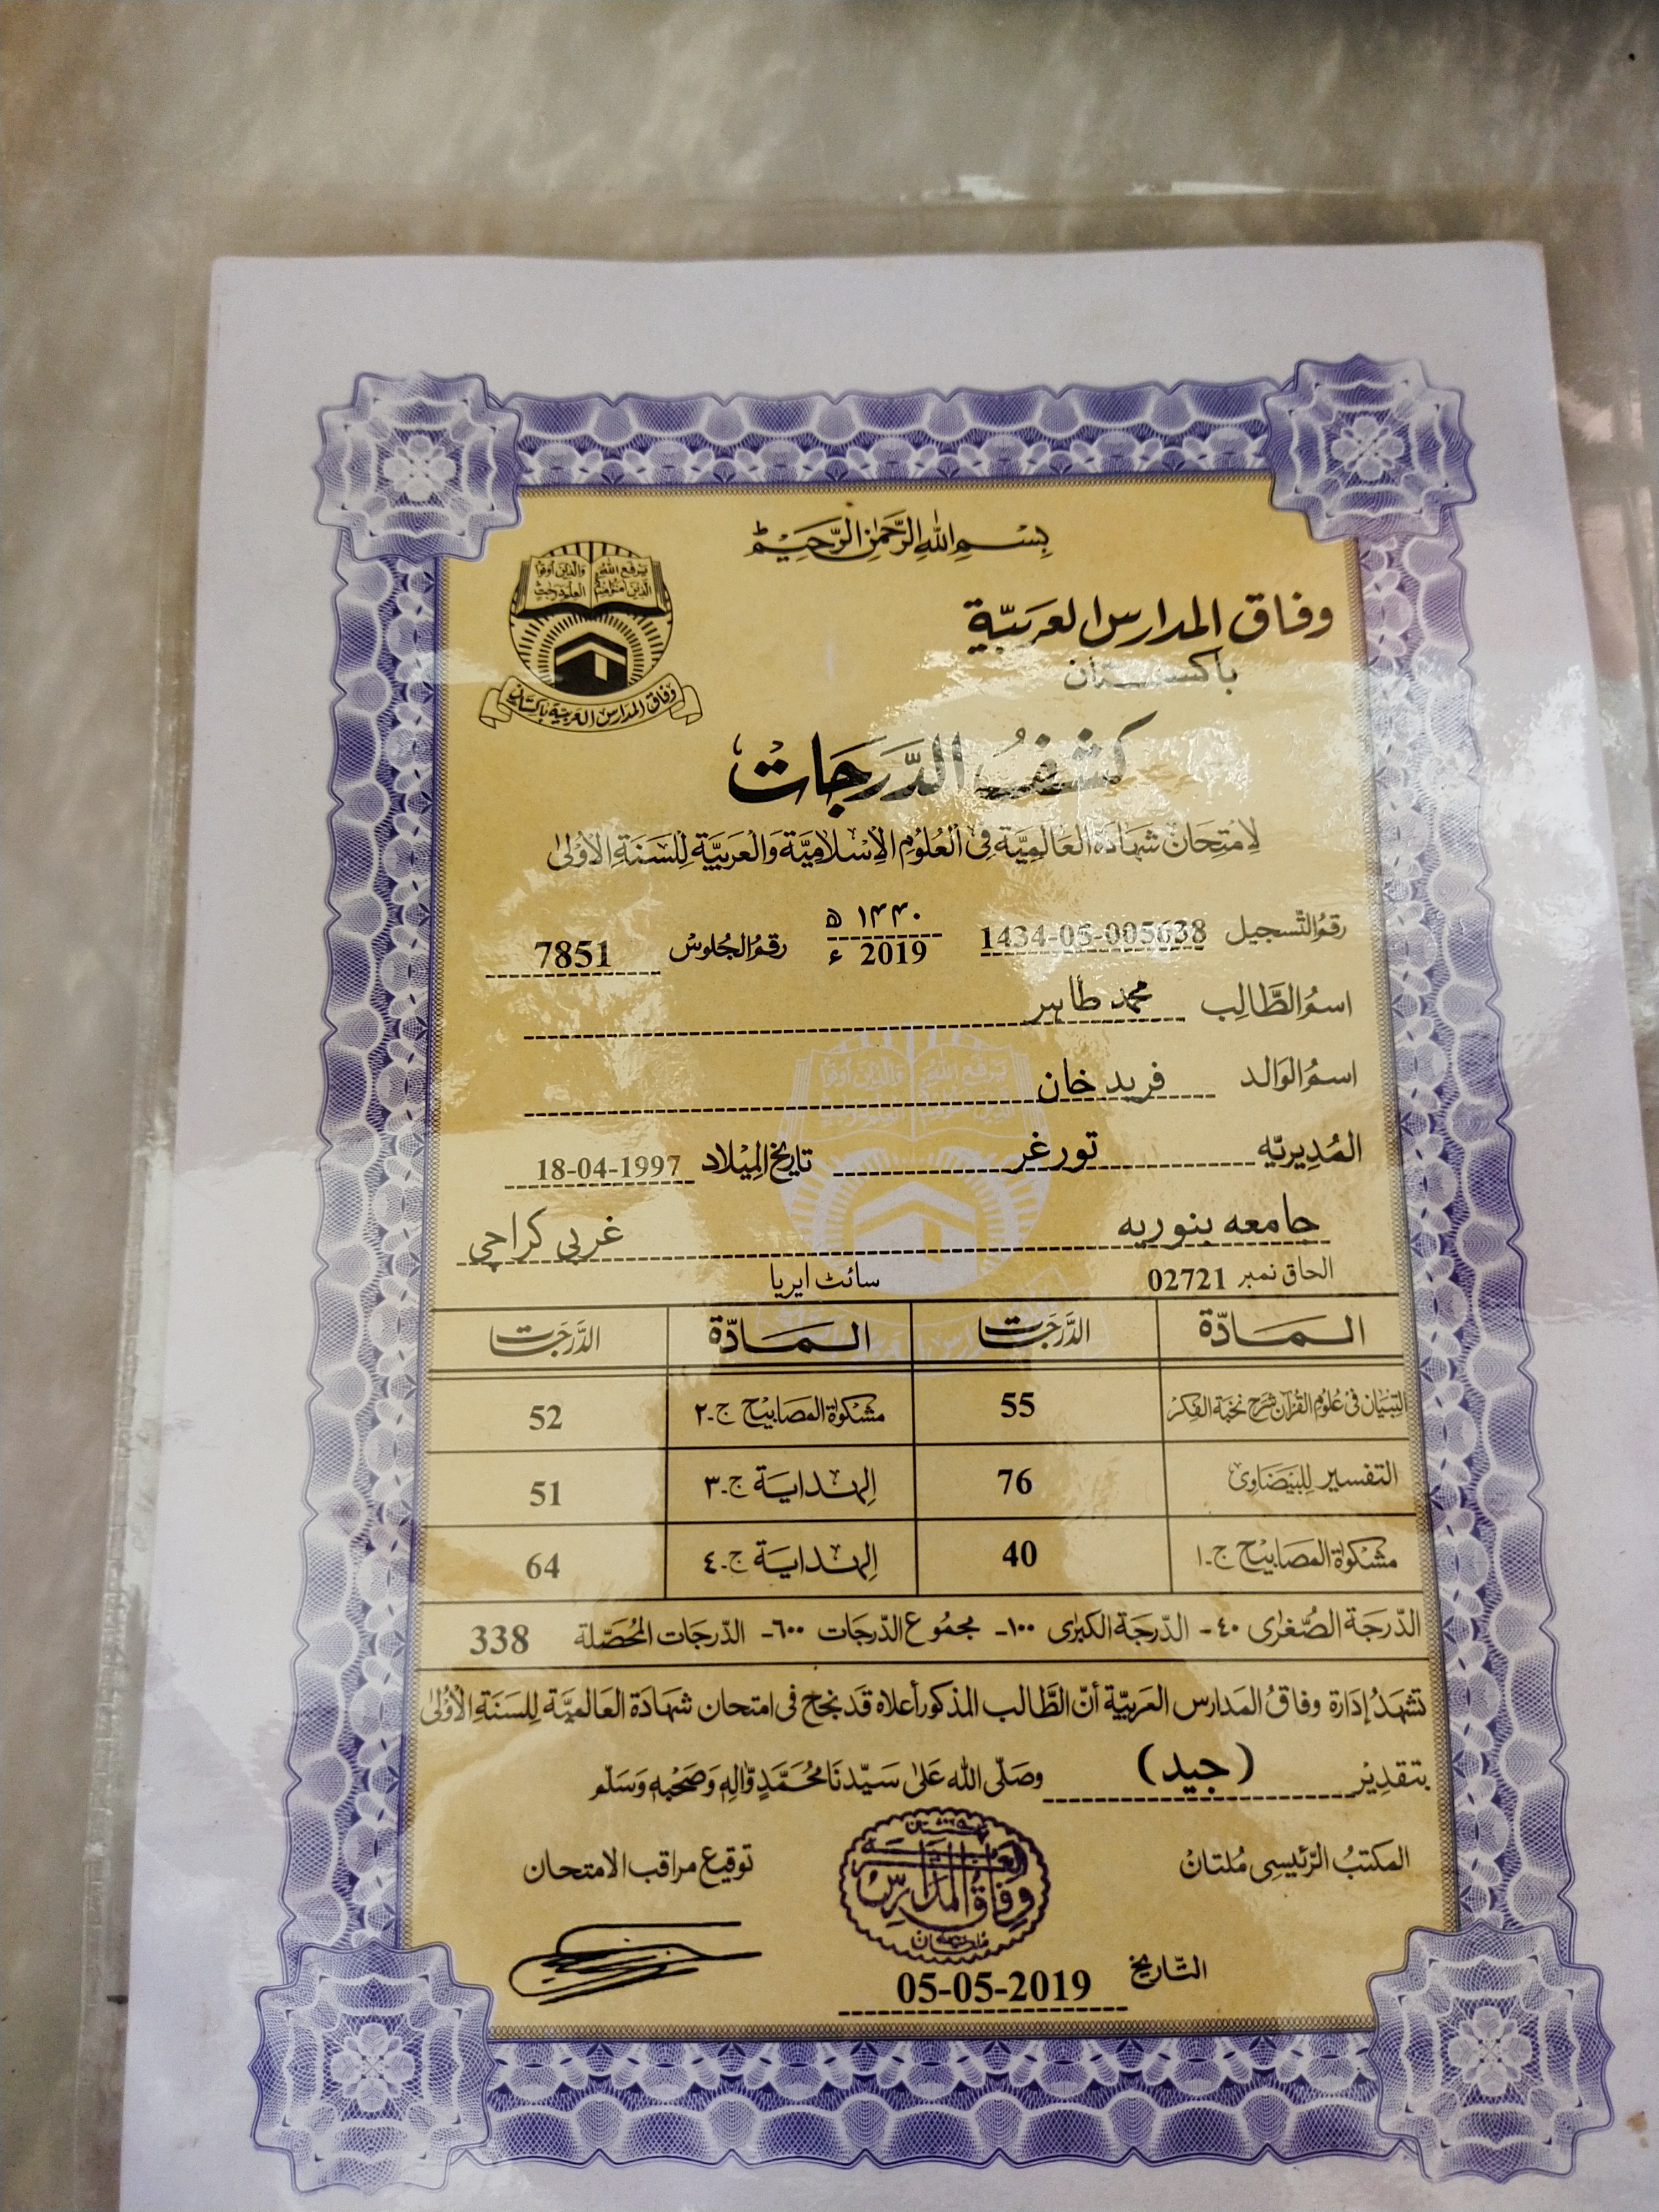 بِسْمِ اللهِ الرَّحْمٰنِ الرَّحِيْمِ
يَرْفَعِ اللهُ الَّذِينَ اٰمَنُوْا مِنْكُمْ وَالَّذِينَ أُوتُوا الْعِلْمَ دَرَجٰتٍ
وفاق المدارس العربية باكستان
وفاق المدارس العربيّة
باكستان
كشفُ الدَّرَجَات
لِامْتِحَانْ شَهَادَة العَالَمِيَّة فِى الْعُلُوْمِ الْاِسْلَامِيَّة وَالْعَرَبِيَّة لِلسَّنَةِ الْأُوْلىٰ
رقمُ التّسجيل 1434-05-005638 ١٤٤٠ ھ 2019 ء رقمُ الجُلوسْ 7851
اسمُ الطَّالِب محمد طاہر
اسمُ الوَالد فرید خان
المُدِيريّه تورغر تاريخ المِيْلاد 18-04-1997
جامعه بنوریه غربی کراچی
الحاق نمبر 02721 سائٹ ایریا
المَادّة الدَّرَجَات المَادّة الدَّرَجَات
التِبيَان فى علُومِ القُرآن شرح نخبة الفِكر 55 مشكوٰة المصابيح ج-٢ 52
التفسير لِلبَيضَاوِى 76 الهداية ج-٣ 51
مشكوٰة المصابيح ج-١ 40 الهداية ج-٤ 64
الدّرجَة الصُّغرٰى ٤٠- الدّرجَة الكبرٰى ١٠٠- مجمُوع الدّرجَات ٦٠٠- الدّرجَات المُحَصّلة 338
تشهَدُ إدَارة وفاقُ المَدارس العَربيّة أنّ الطَّالب المذكور أعلاه قَد نجح فى امتحان شَهَادَة العَالميَّة لِلسَنَةِ الْأُوْلىٰ
بتقدِيْر (جيد) وصَلّى الله عَلىٰ سَيّدنَا مُحَمَّدٍ وَّاٰلِهٖ وَصَحْبِهٖ وَسَلّم
المكتبُ الرّئيسِى مُلتانْ توقيع مراقب الامتحان
وفاق المدارس العربية
التّاريخ 05-05-2019